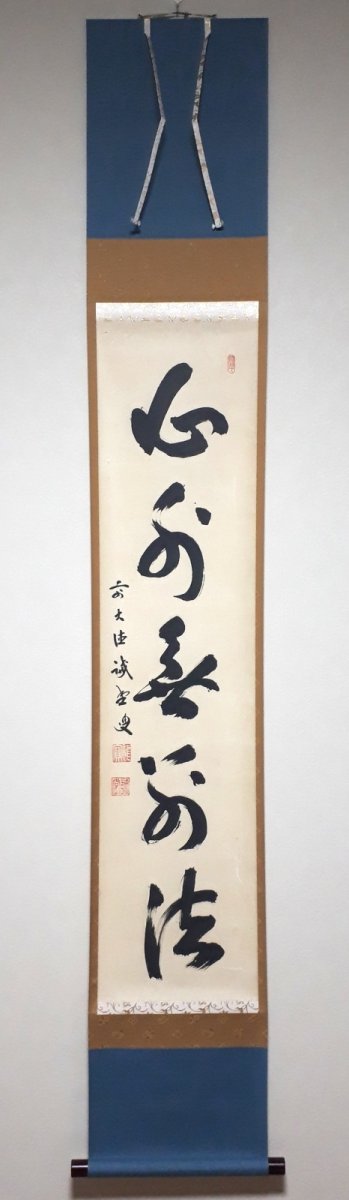 心外無別法
前大徳誠堂叟